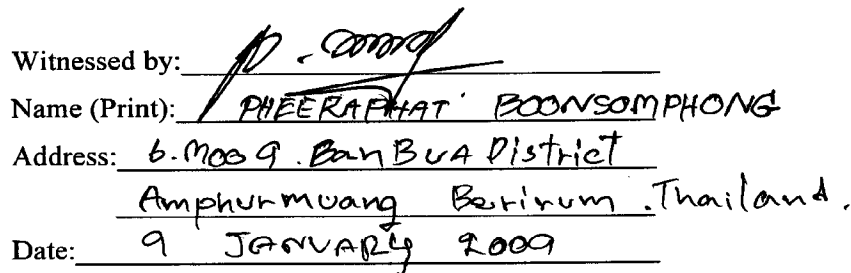 Witnessed by:
Name (Print): PHEERAPHAT BOONSOMPHONG
Address: 6. Moo 9. Ban BUA District
Amphurmuang Berirum. Thailand.
Date: 9 JANUARY 2009